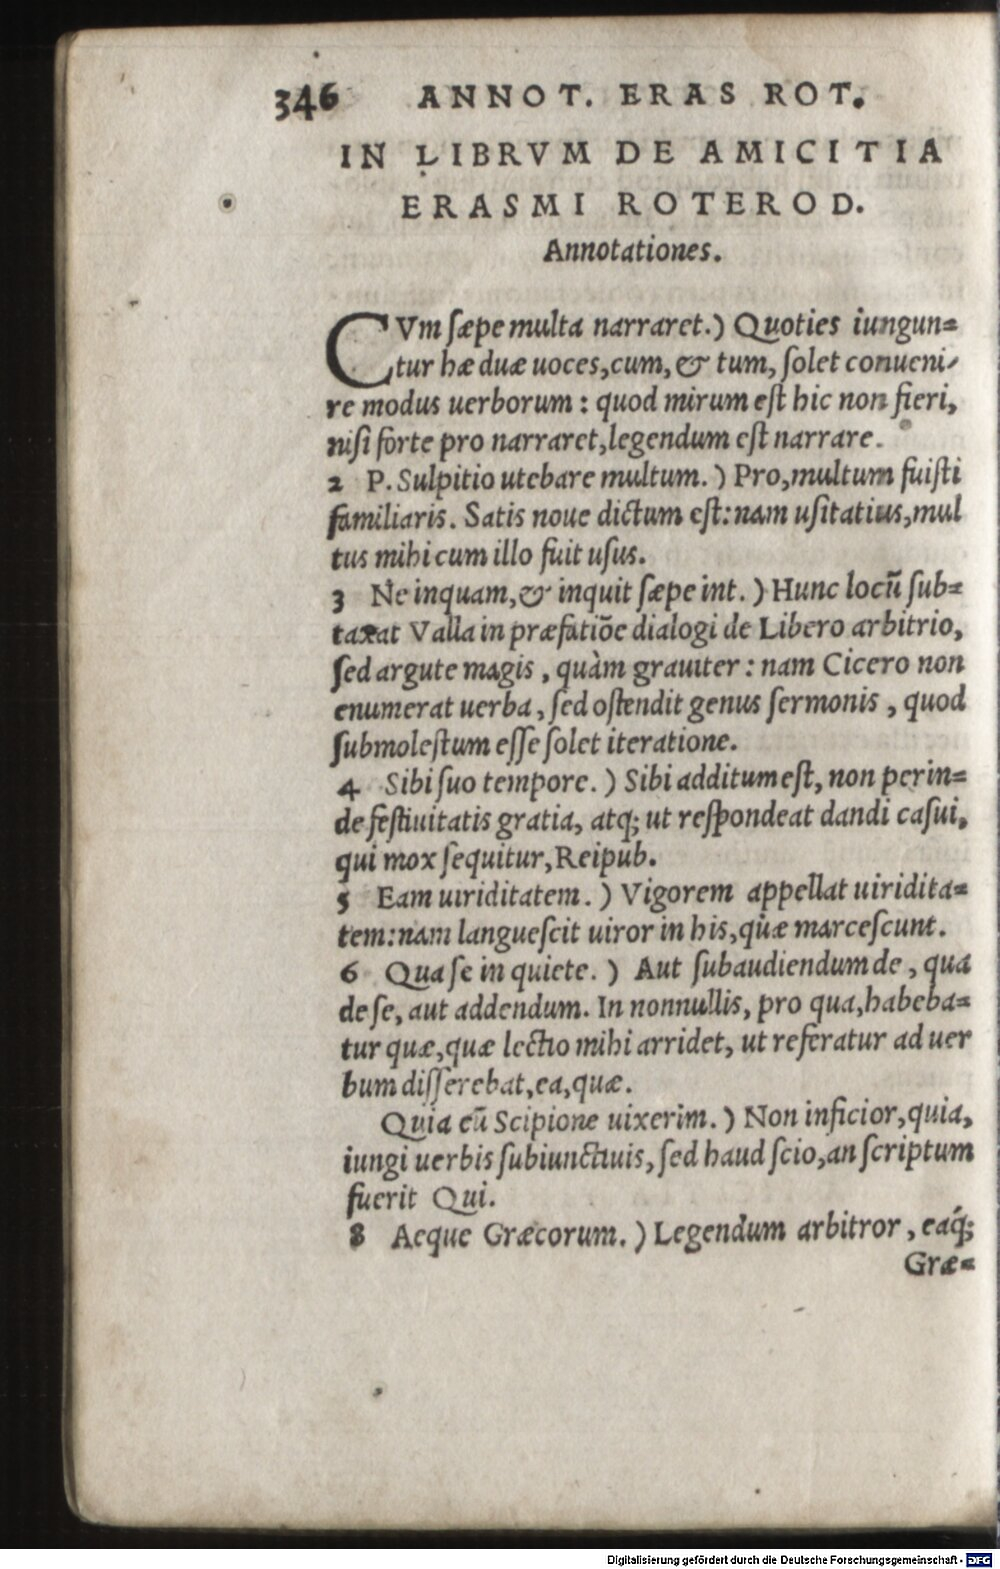 346 ANNOT. ERAS ROT.
IN LIBRVM DE AMICITIA
ERASMI ROTEROD.
Annotationes.
CVm sæpe multa narraret.) Quoties iungun=
tur hæ duæ uoces, cum, & tum, solet conueni/
re modus uerborum : quod mirum est hic non fieri,
nisi forte pro narraret, legendum est narrare.
2 P. Sulpitio utebare multum.) Pro, multum fuisti
familiaris. Satis noue dictum est: nam usitatius, mul
tus mihi cum illo fuit usus.
3 Ne inquam, & inquit sæpe int.) Hunc locũ sub=
taxat Valla in præfatiõe dialogi de Libero arbitrio,
sed argute magis, quàm grauiter : nam Cicero non
enumerat uerba, sed ostendit genus sermonis, quod
submolestum esse solet iteratione.
4 Sibi suo tempore.) Sibi additum est, non perin=
de festiuitatis gratia, atq; ut respondeat dandi casui,
qui mox sequitur, Reipub.
5 Eam uiriditatem.) Vigorem appellat uiridita=
tem: nam languescit uiror in his, quæ marcescunt.
6 Qua se in quiete.) Aut subaudiendum de, qua
de se, aut addendum. In nonnullis, pro qua, habeba=
tur quæ, quæ lectio mihi arridet, ut referatur ad uer
bum disserebat, ea, quæ.
Quia cũ Scipione uixerim.) Non inficior, quia,
iungi uerbis subiunctiuis, sed haud scio, an scriptum
fuerit Qui.
8 Aeque Græcorum.) Legendum arbitror, eaq́;
Græ=
Digitalisierung gefördert durch die Deutsche Forschungsgemeinschaft - DFG